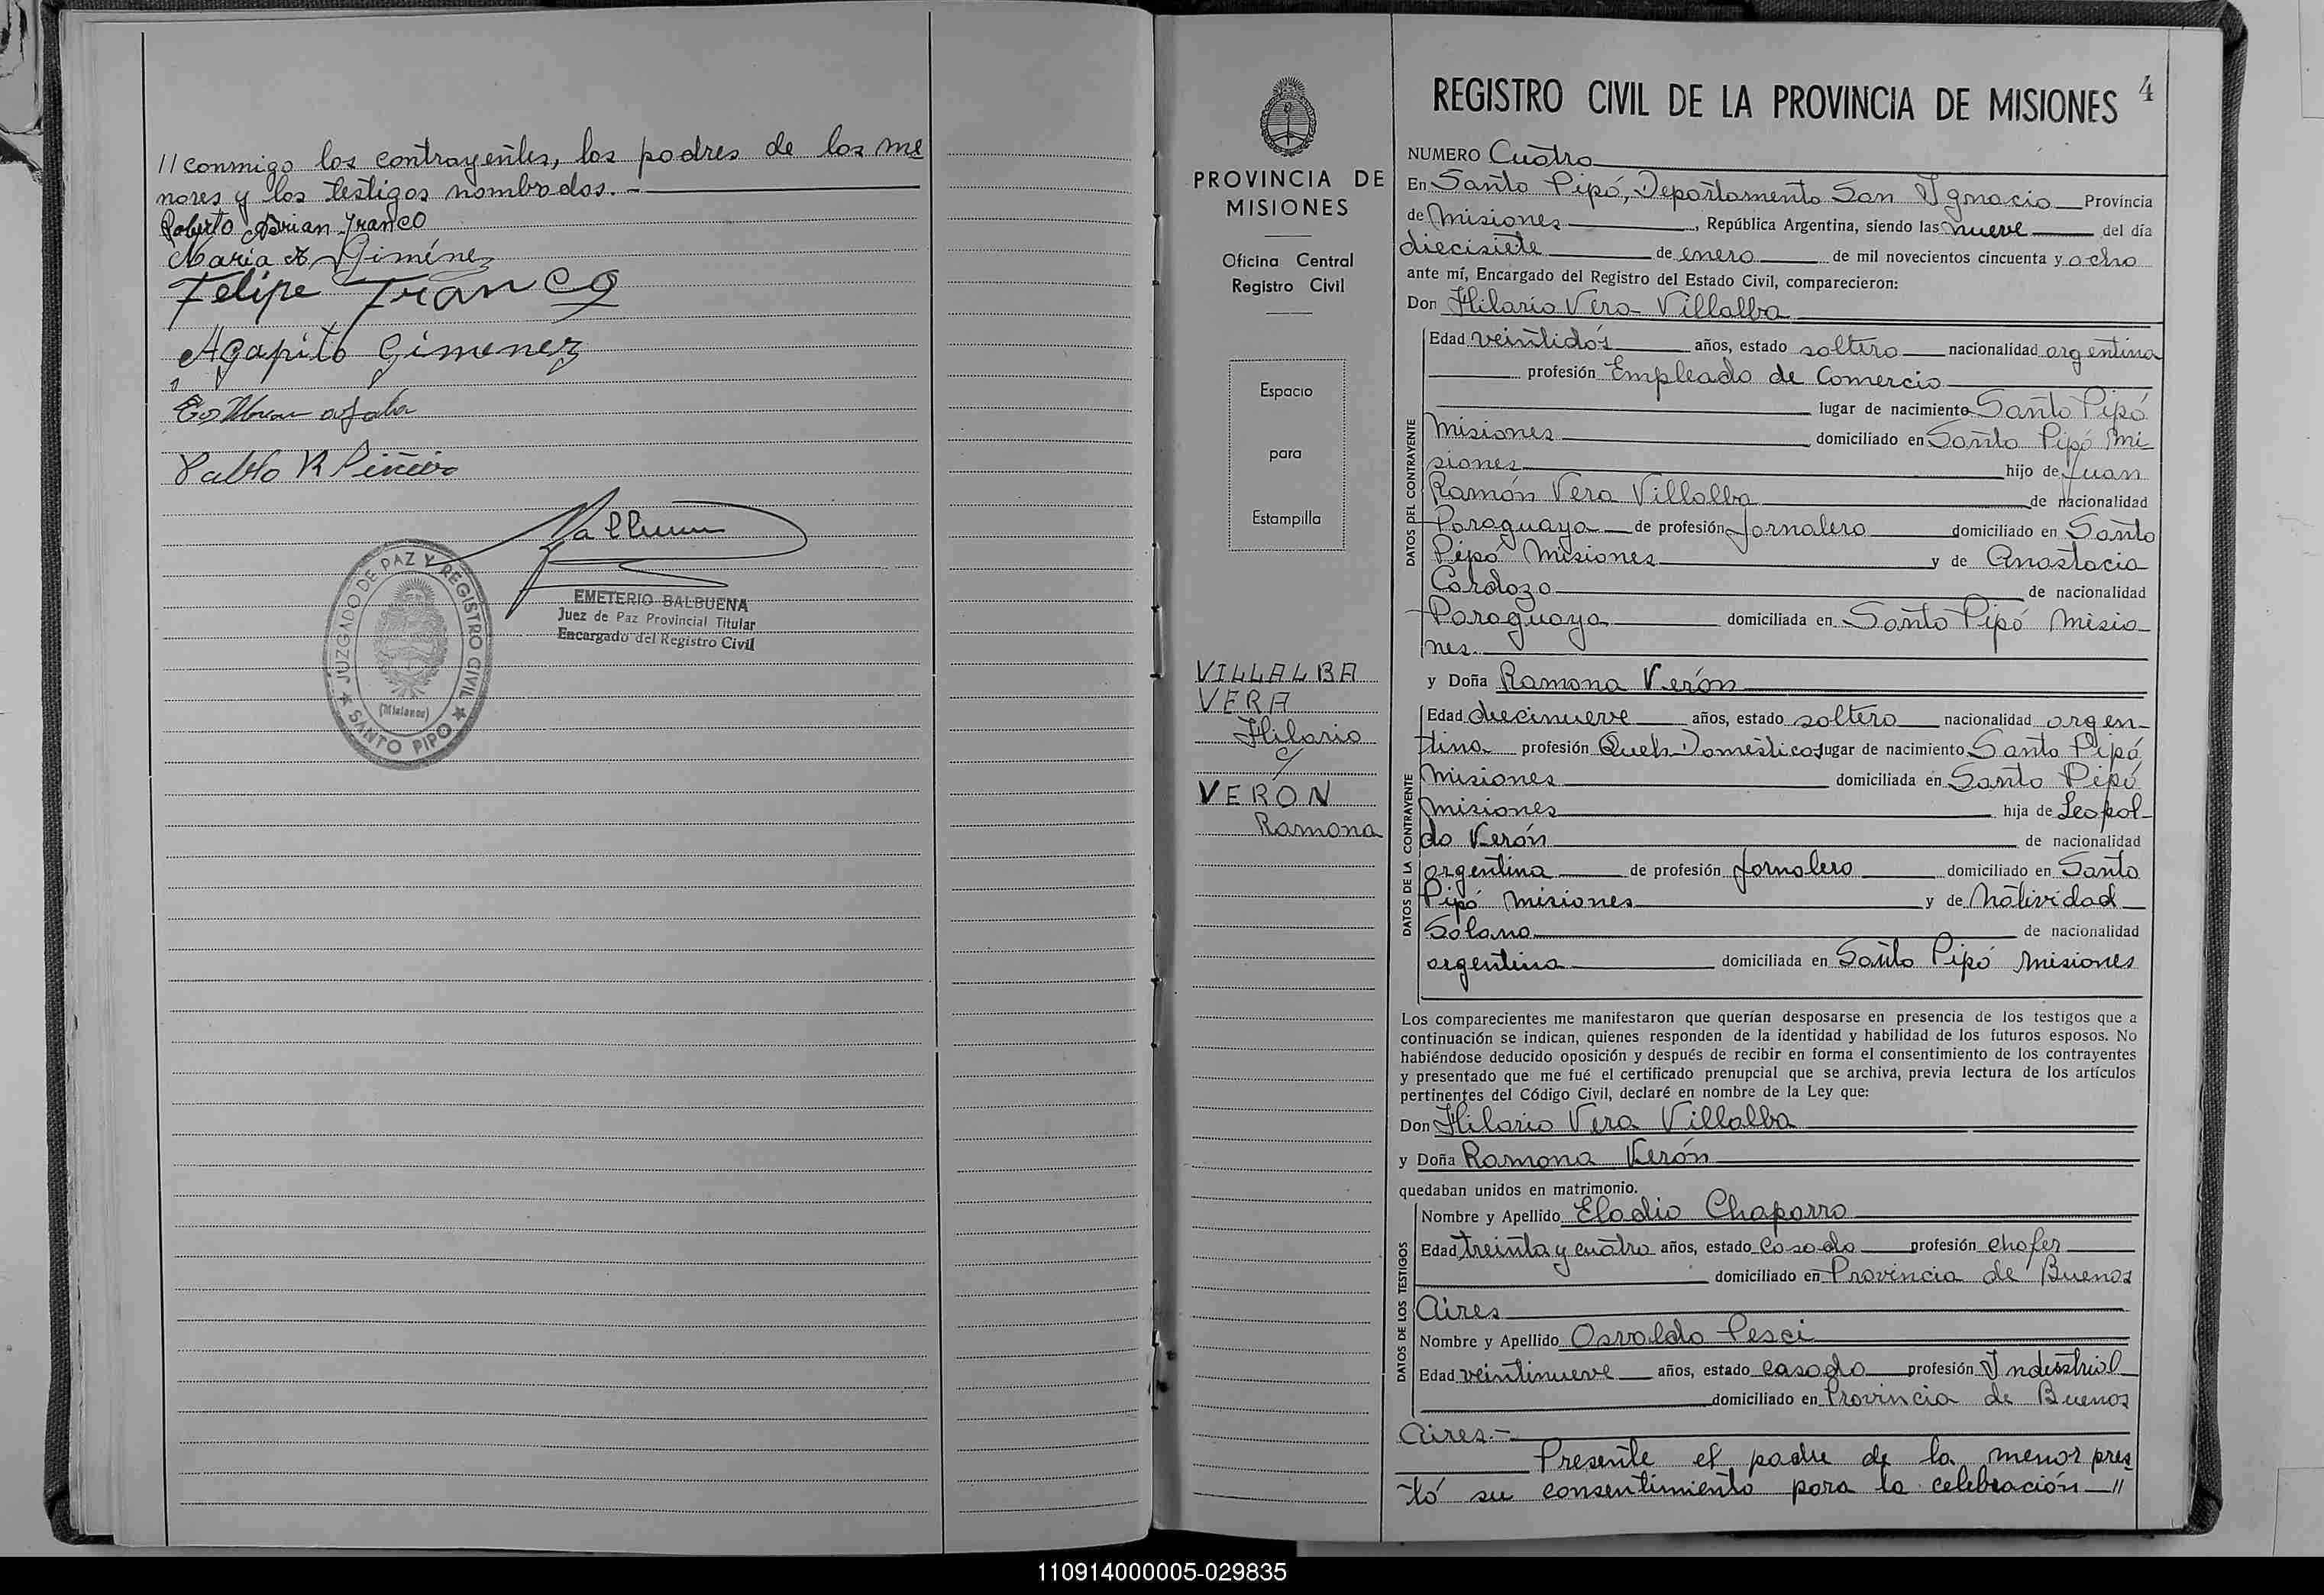 // conmigo los contrayentes, los padres de los me
nores y los testigos nombrados. -
Roberto Adrian Franco
Maria A. Giménez
Felipe Franco
Agapito Gimenez
Pablo R Piñeiro
EMETERIO BALBUENA
Juez de Paz Provincial Titular
Encargado del Registro Civil
JUZGADO DE PAZ Y REGISTRO CIVIL
(Misiones)
★ SANTO PIPO ★
PROVINCIA DE
MISIONES
Oficina Central
Registro Civil
Espacio
para
Estampilla
VILLALBA
VERA
Hilario
c/
VERÓN
Ramona
4
REGISTRO CIVIL DE LA PROVINCIA DE MISIONES
NUMERO Cuatro
En Santo Pipó, Departamento San Ignacio Provincia
de Misiones, República Argentina, siendo las nueve del día
diecisiete de enero de mil novecientos cincuenta y ocho
ante mí, Encargado del Registro del Estado Civil, comparecieron:
Don Hilario Vera Villalba
DATOS DEL CONTRAYENTE
Edad veintidós años, estado soltero nacionalidad argentina
profesión Empleado de Comercio
lugar de nacimiento Santo Pipó
Misiones domiciliado en Santo Pipó Mi
siones hijo de Juan
Ramón Vera Villalba de nacionalidad
Paraguaya de profesión Jornalero domiciliado en Santo
Pipó Misiones y de Anastacia
Cardozo de nacionalidad
Paraguaya domiciliada en Santo Pipó Misio
nes.
y Doña Ramona Verón
DATOS DE LA CONTRAYENTE
Edad diecinueve años, estado soltero nacionalidad argen-
tina profesión Queh. Domésticos lugar de nacimiento Santo Pipó
Misiones domiciliada en Santo Pipó
Misiones hija de Leopol-
do Verón de nacionalidad
argentina de profesión Jornalero domiciliado en Santo
Pipó Misiones y de Natividad
Solano de nacionalidad
argentina domiciliada en Santo Pipó Misiones
Los comparecientes me manifestaron que querían desposarse en presencia de los testigos que a
continuación se indican, quienes responden de la identidad y habilidad de los futuros esposos. No
habiéndose deducido oposición y después de recibir en forma el consentimiento de los contrayentes
y presentado que me fué el certificado prenupcial que se archiva, previa lectura de los artículos
pertinentes del Código Civil, declaré en nombre de la Ley que:
Don Hilario Vera Villalba
y Doña Ramona Verón
quedaban unidos en matrimonio.
DATOS DE LOS TESTIGOS
Nombre y Apellido Eladio Chaparro
Edad treinta y cuatro años, estado casado profesión chofer
domiciliado en Provincia de Buenos
Aires
Nombre y Apellido Osvaldo Pesci
Edad veintinueve años, estado casado profesión Industrial
domiciliado en Provincia de Buenos
Aires.-
Presente el padre de la menor pres
tó su consentimiento para la celebración //
110914000005-029835